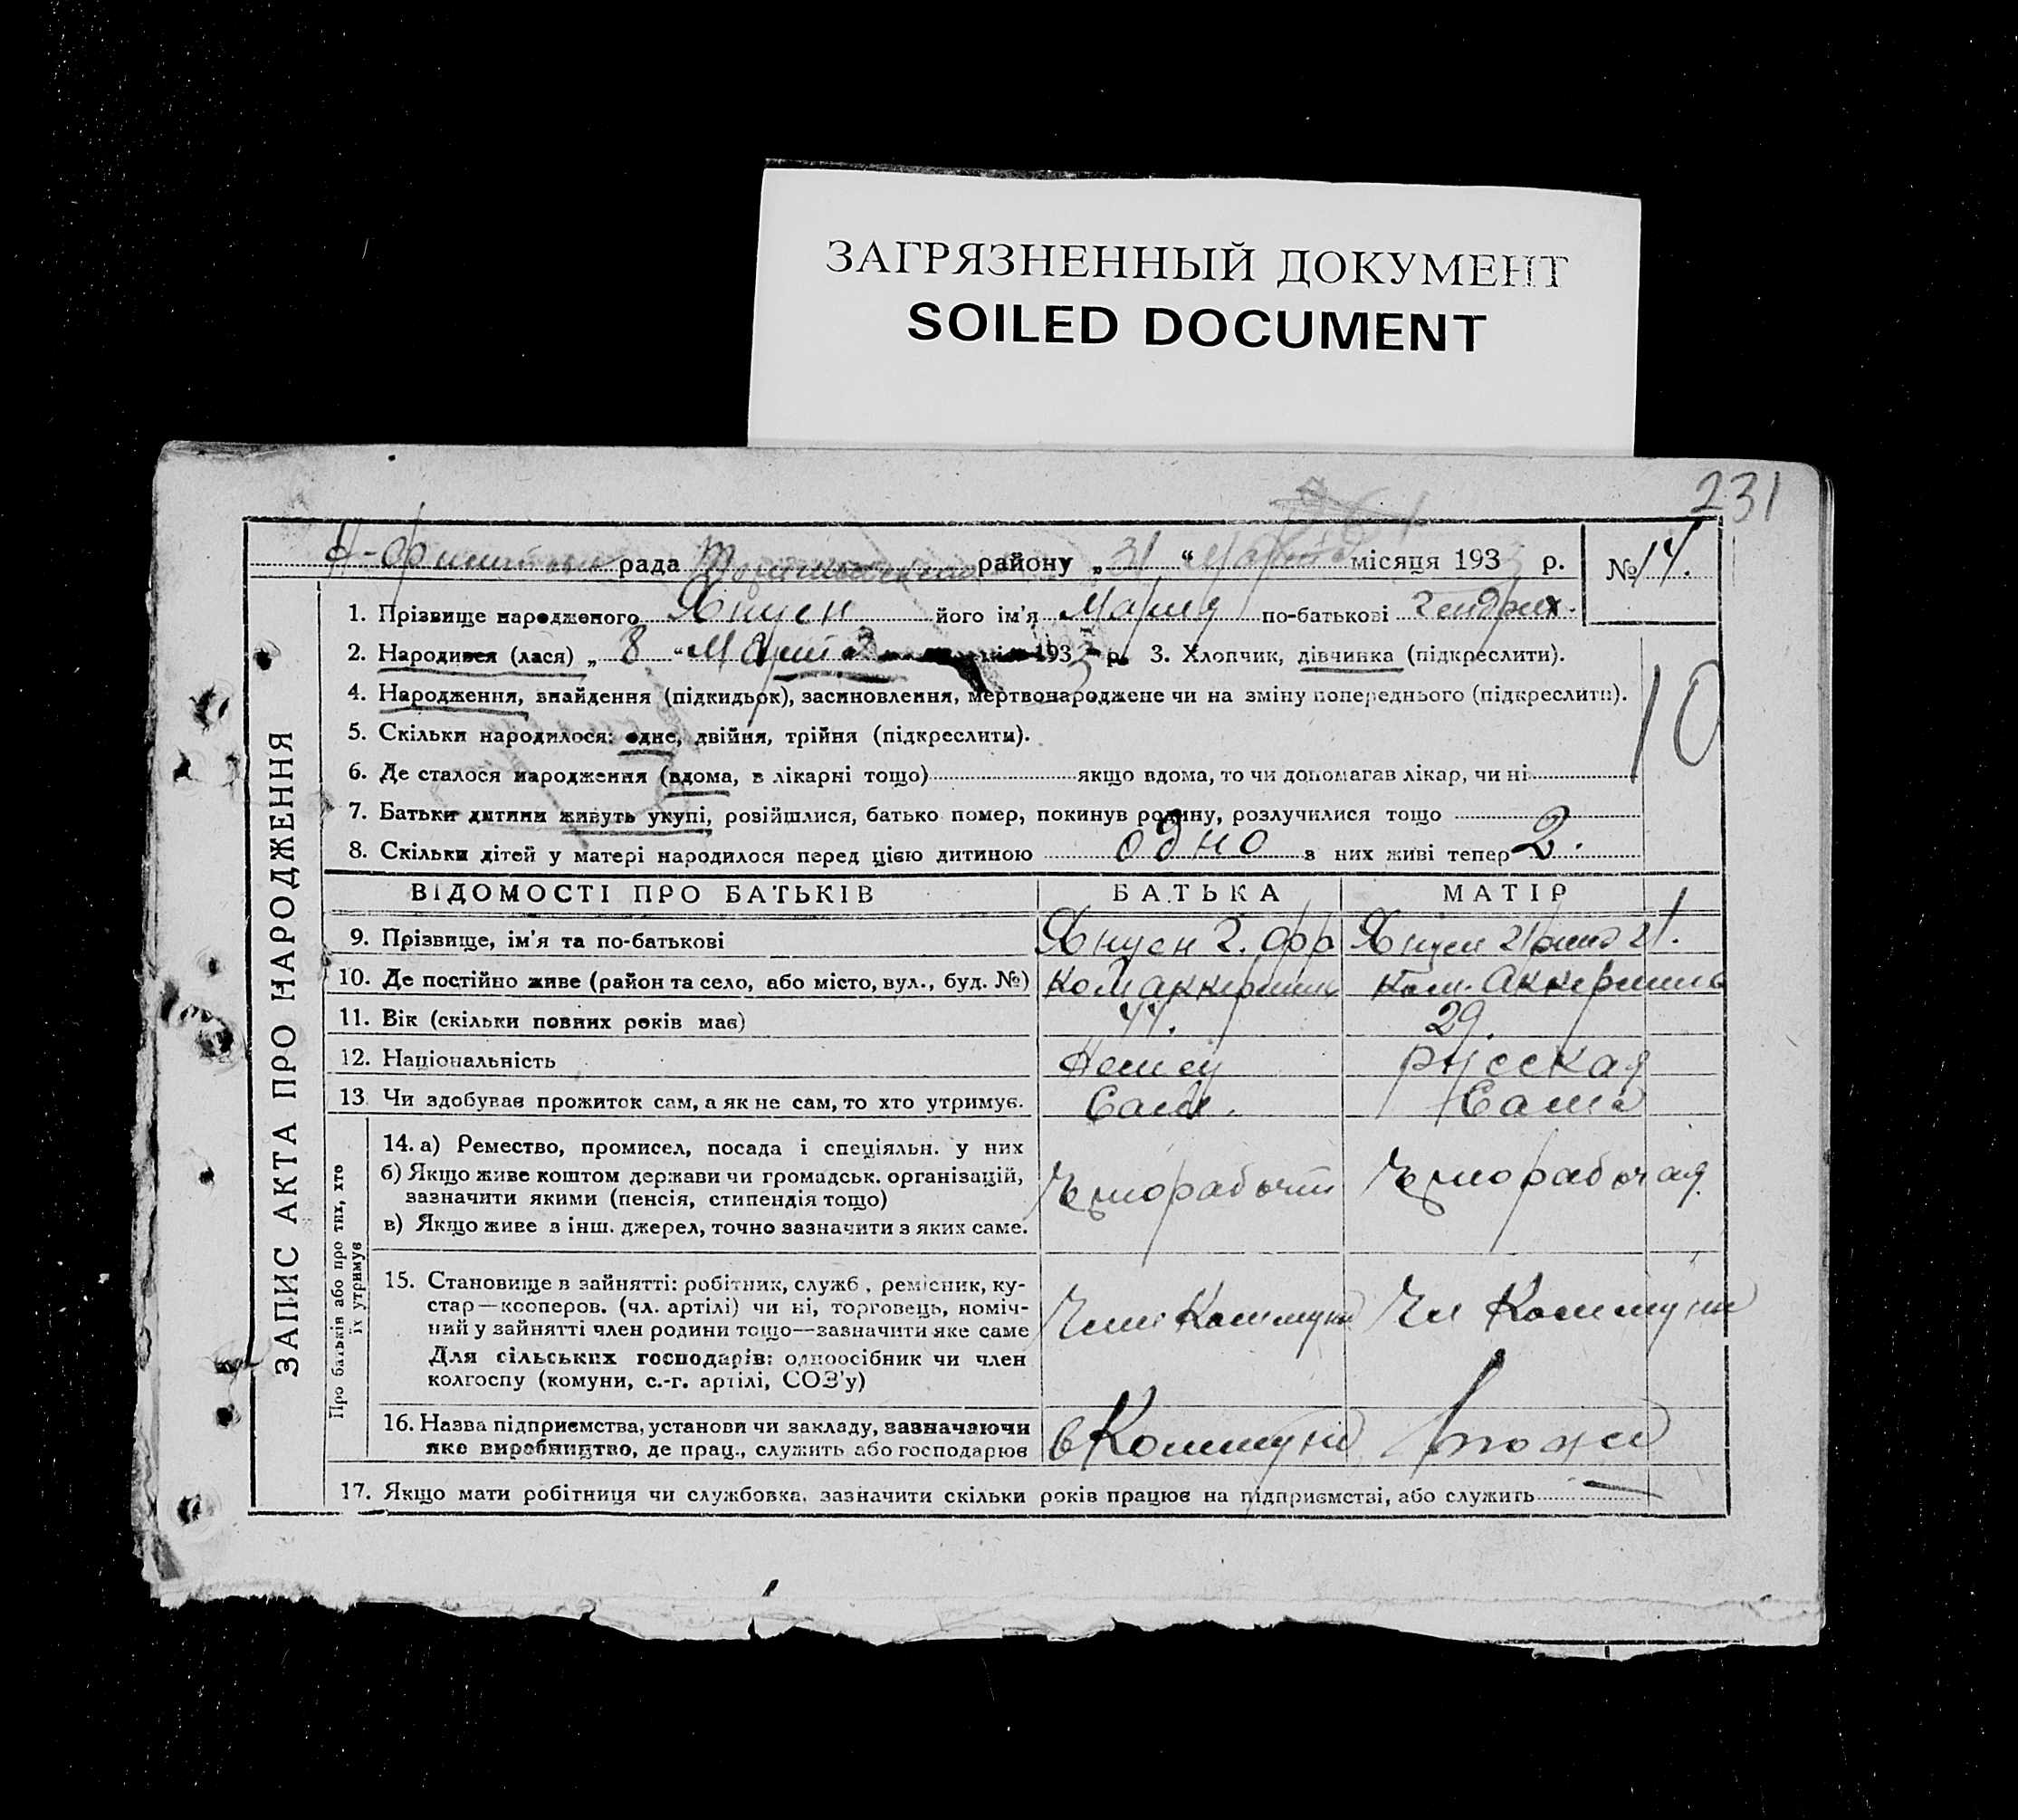 ЗАГРЯЗНЕННЫЙ ДОКУМЕНТ
SOILED DOCUMENT
231
рада району „31 “ Марта місяця 1933 р. № 14.
ЗАПИС АКТА ПРО НАРОДЖЕННЯ
1. Прізвище народженого Янцен його ім'я Мария по-батькові Гендрих.
2. Народився (лася) „ 8 “ Марта 1933 р. 3. Хлопчик, дівчинка (підкреслити).
4. Народження, знайдення (підкидьок), засиновлення, мертвонароджене чи на зміну попереднього (підкреслити).
10
5. Скільки народилося: одне, двійня, трійня (підкреслити).
6. Де сталося народження (вдома, в лікарні тощо) якщо вдома, то чи допомагав лікар, чи ні
7. Батьки дитини живуть укупі, розійшлися, батько помер, покинув родину, розлучилися тощо
8. Скільки дітей у матері народилося перед цією дитиною одно з них живі тепер 2.
ВІДОМОСТІ ПРО БАТЬКІВ БАТЬКА МАТІР
9. Прізвище, ім'я та по-батькові Янцен Г. Янцен
10. Де постійно живе (район та село, або місто, вул., буд. №) Ком. Аккермень
11. Вік (скільки повних років має) 44. 29.
12. Національність Немец русская
13 Чи здобуває прожиток сам, а як не сам, то хто утримує. Сам. Сама
Про батьків або про тих, хто їх утримує
14. а) Ремество, промисел, посада і спеціяльн. у них
б) Якщо живе коштом держави чи громадськ. організацій,
зазначити якими (пенсія, стипендія тощо) Чернорабочий Чернорабочая
в) Якщо живе з інш. джерел, точно зазначити з яких саме.
15. Становище в зайнятті: робітник, служб., ремісник, ку-
стар—кооперов. (чл. артілі) чи ні, торговець, поміч- Член Коммуни Чл Коммуни
ний у зайнятті член родини тощо—зазначити яке саме
Для сільських господарів: одноосібник чи член
колгоспу (комуни, с.-г. артілі, СОЗ'у)
16. Назва підприємства, установи чи закладу, зазначаючи
яке виробництво, де прац., служить або господарює в Коммуні
17. Якщо мати робітниця чи службовка, зазначити скільки років працює на підприємстві, або служить —